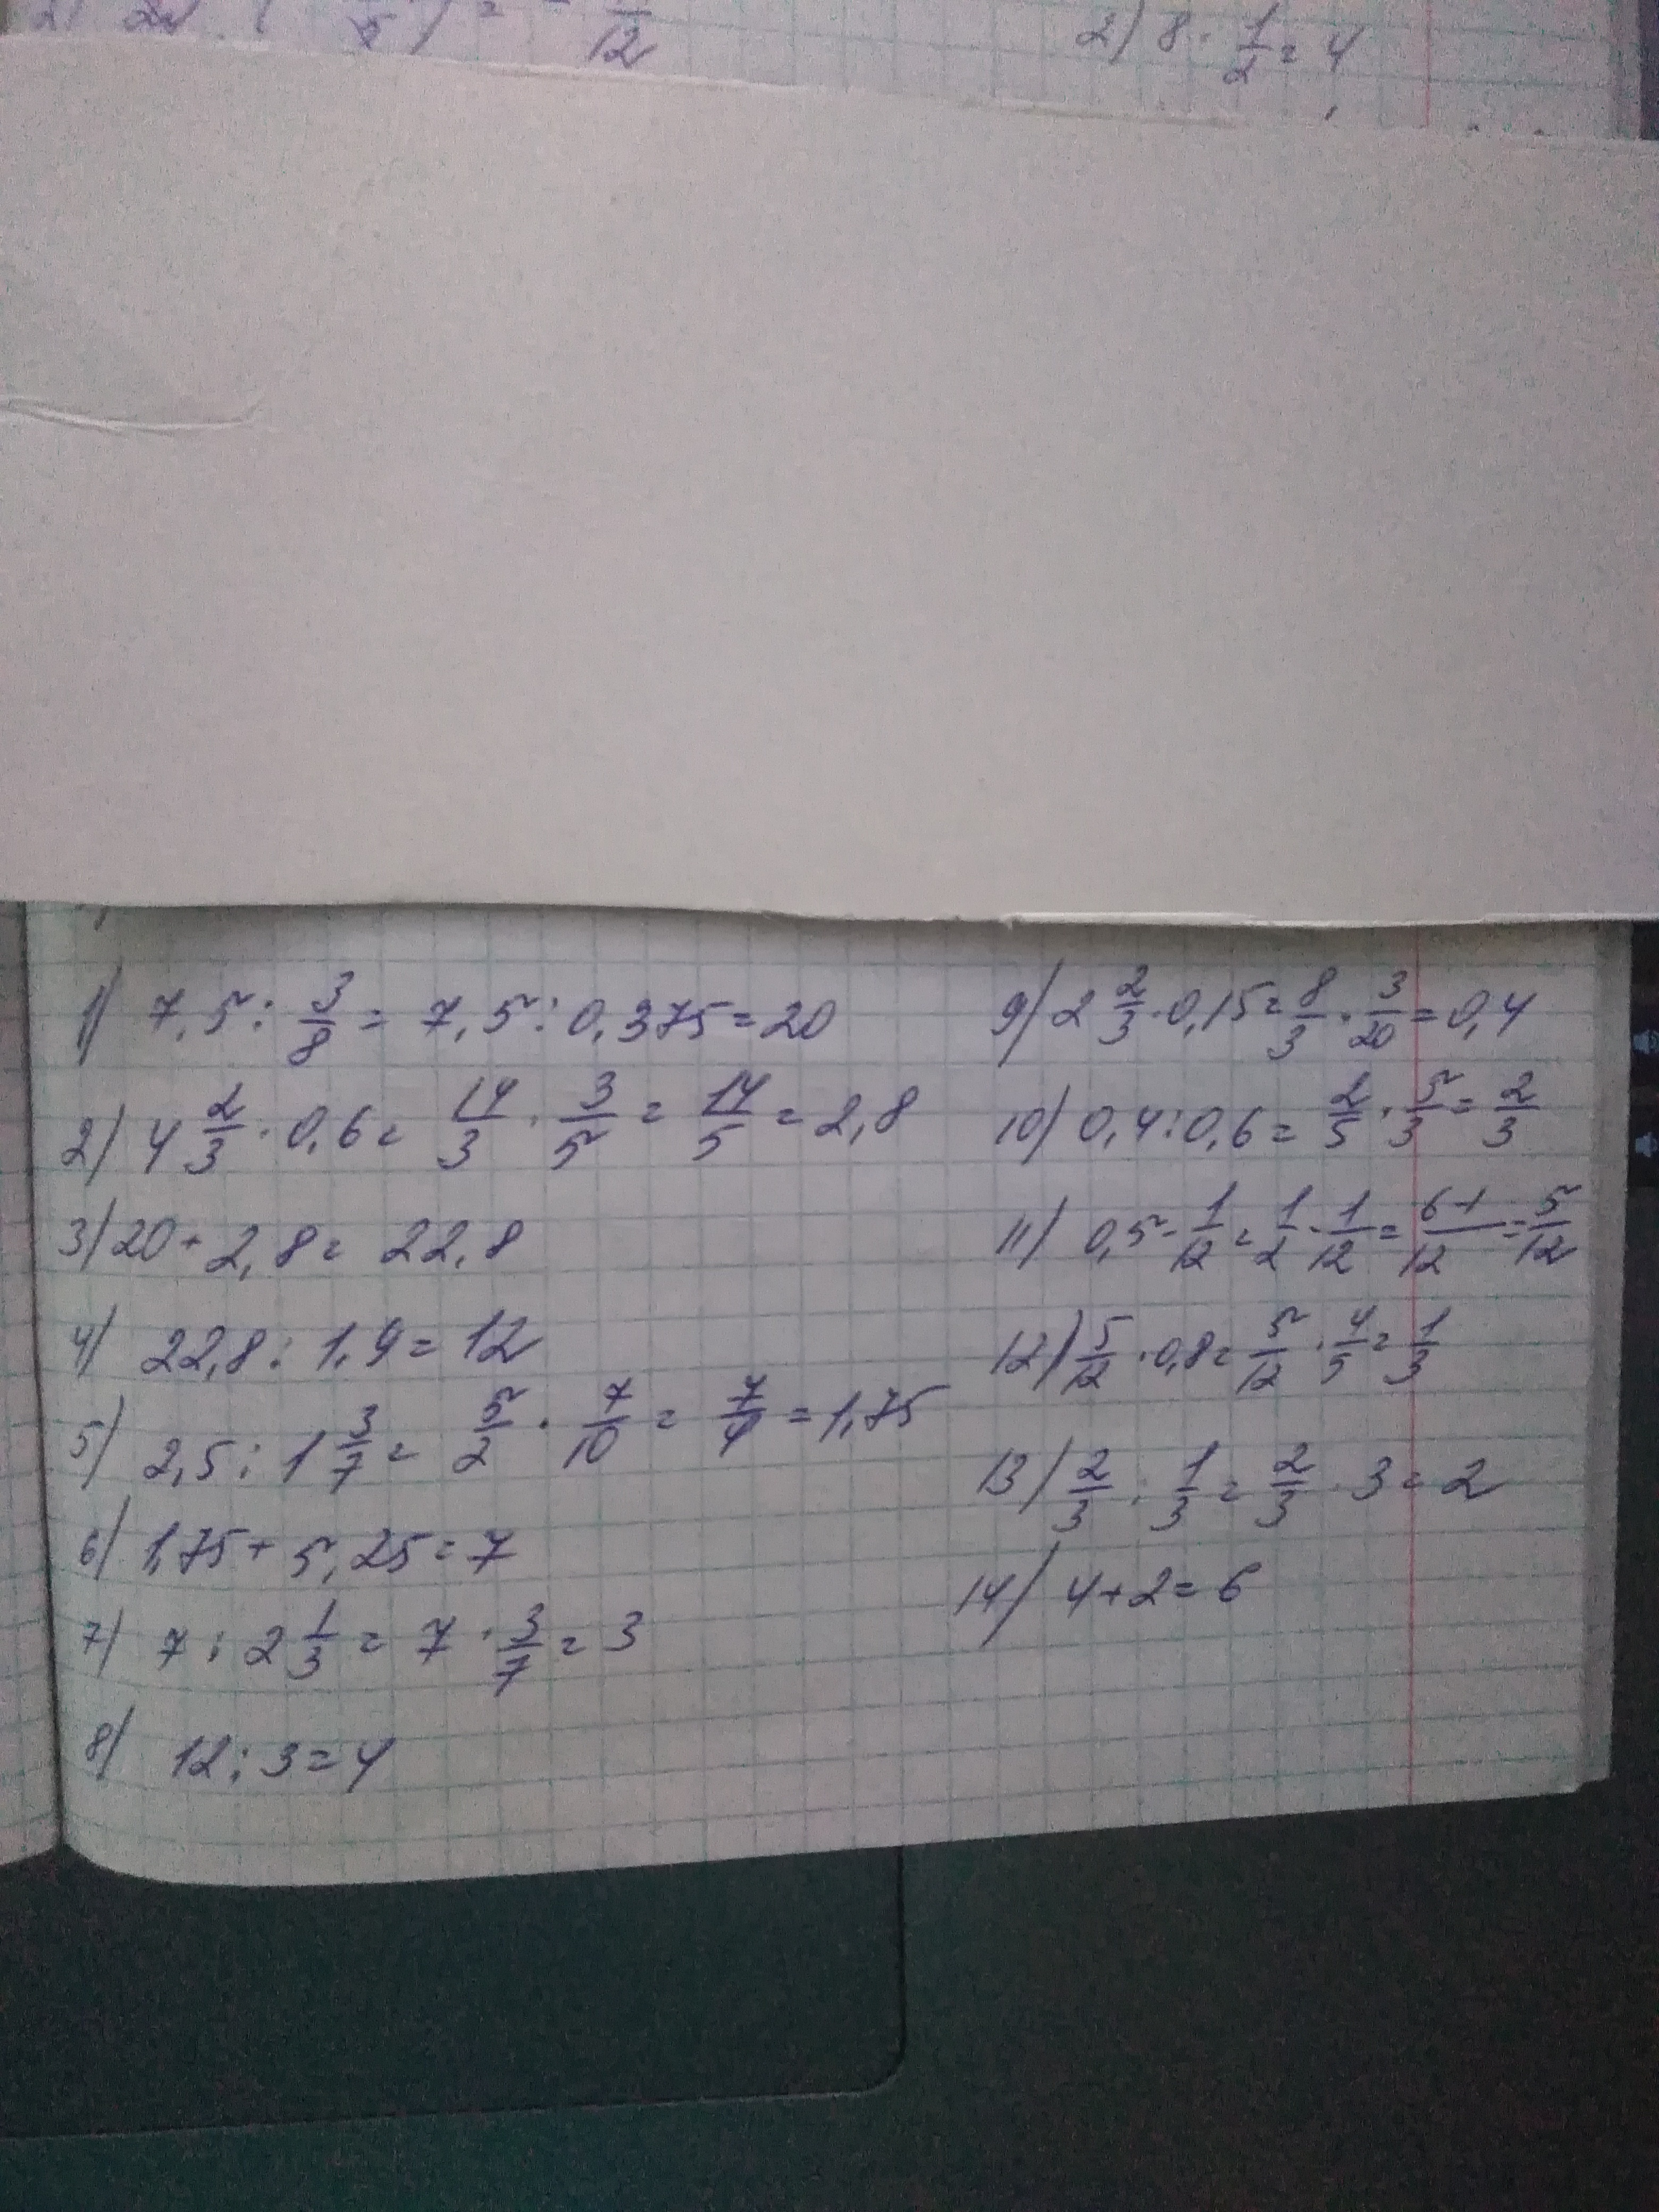 2) 8 · 1/2 = 4
1) 7,5 : 3/8 = 7,5 : 0,375 = 20
2) 4 2/3 · 0,6 = 14/3 · 3/5 = 14/5 = 2,8
3) 20 + 2,8 = 22,8
4) 22,8 : 1,9 = 12
5) 2,5 : 1 3/7 = 5/2 · 7/10 = 7/4 = 1,75
6) 1,75 + 5,25 = 7
7) 7 : 2 1/3 = 7 · 3/7 = 3
8) 12 : 3 = 4
9) 2 2/3 · 0,15 = 8/3 · 3/20 = 0,4
10) 0,4 : 0,6 = 2/5 · 5/3 = 2/3
11) 0,5 - 1/12 = 1/2 - 1/12 = 6-1/12 = 5/12
12) 5/12 · 0,8 = 5/12 · 4/5 = 1/3
13) 2/3 : 1/3 = 2/3 · 3 = 2
14) 4 + 2 = 6